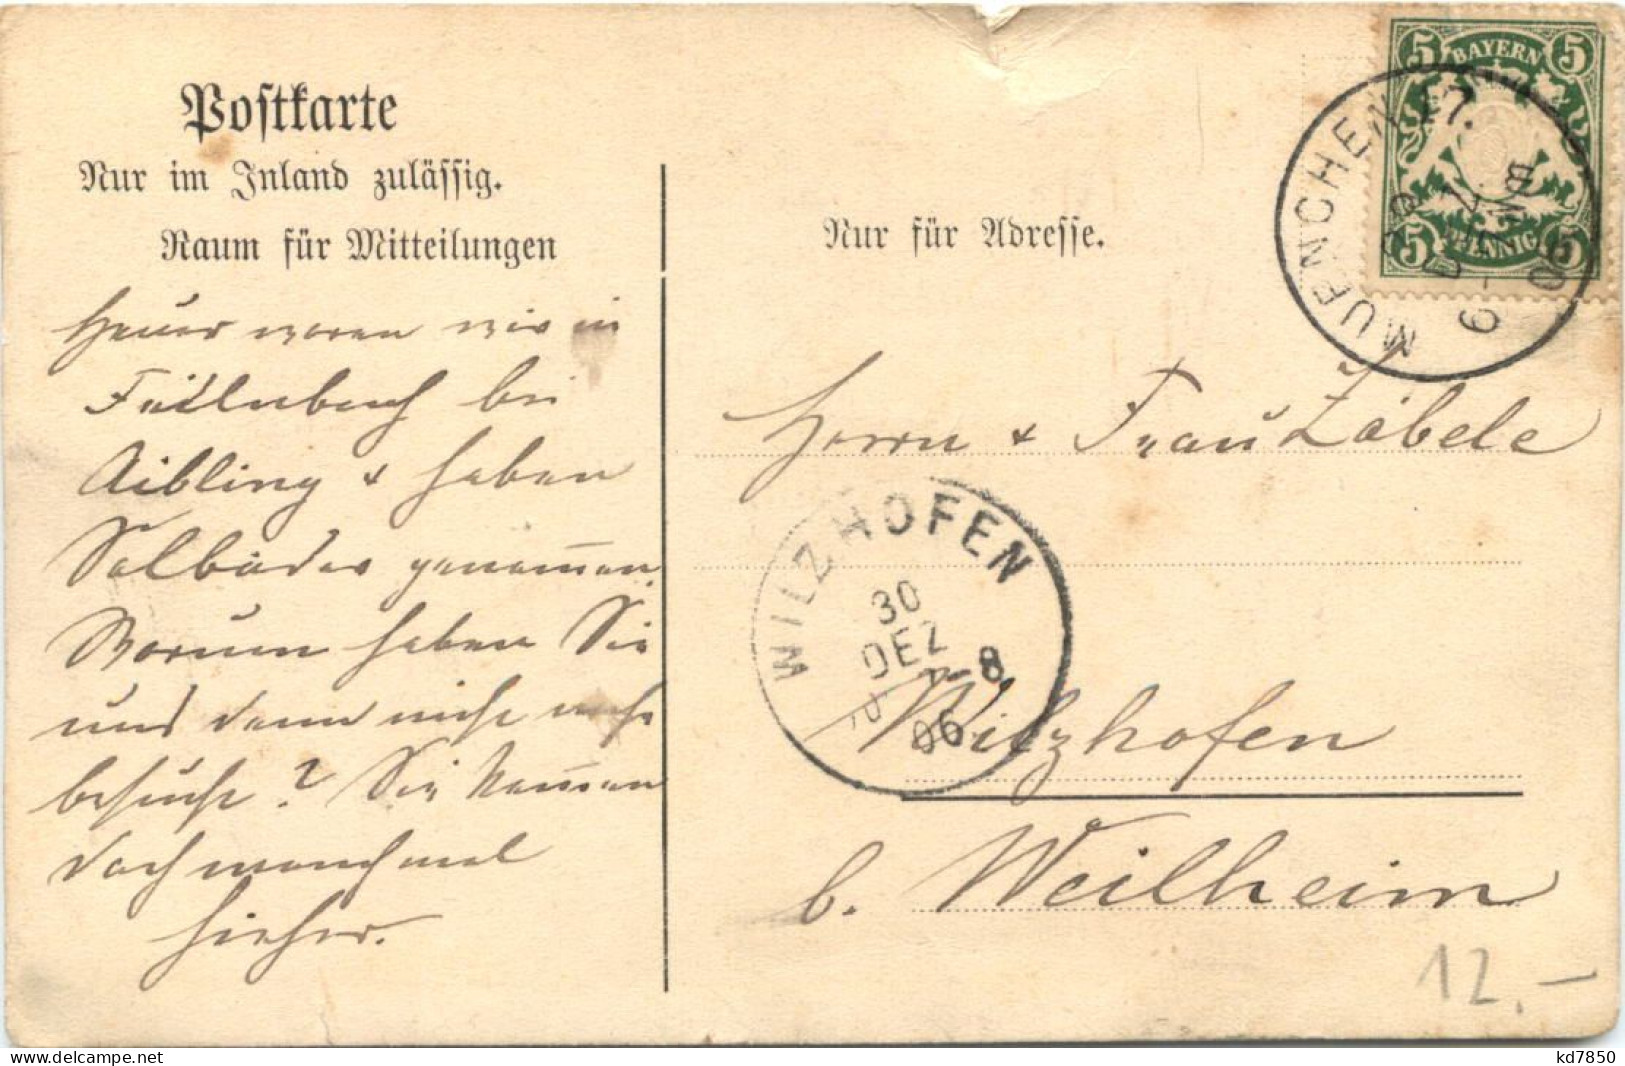 Postkarte
Nur im Inland zulässig.
Raum für Mitteilungen
Nur für Adresse.
BAYERN
5 5
5 PFENNIG 5
MUENCHEN 17.
30
DEZ
06
Heuer waren wir in
bei
Aibling & haben
Solbäder genommen.
Warum haben Sie
uns denn nicht mehr
besucht? Sie kommen
doch manchmal
hieher.
Herrn & Frau Zäbele
WILZHOFEN
30
DEZ
7-8
06
Wilzhofen
b. Weilheim
12,-
www.delcampe.net
kd7850